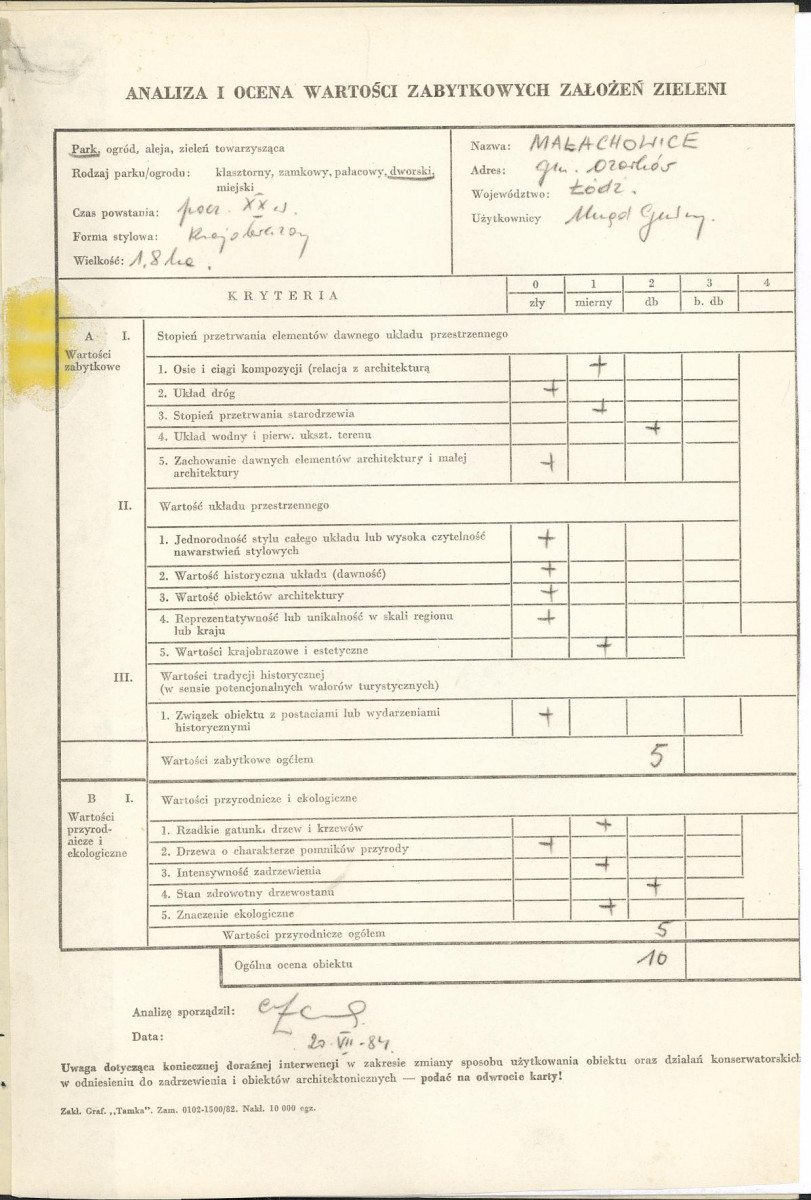 ANALIZA I OCENA WARTOŚCI ZABYTKOWYCH ZAŁOŻEŃ ZIELENI
Park, ogród, aleja, zieleń towarzysząca
Rodzaj parku/ogrodu: klasztorny, zamkowy, pałacowy, dworski,
miejski
Czas powstania: pocz. XX w.
Forma stylowa: krajobrazowy
Wielkość: 1,8 ha.
Nazwa: MAŁACHOWICE
Adres: gm. Ozorków
Województwo: Łódź.
Użytkownicy Urząd Gminy.
KRYTERIA
0 1 2 3 4
zły mierny db b. db
A I. Stopień przetrwania elementów dawnego układu przestrzennego
Wartości
zabytkowe
1. Osie i ciągi kompozycji (relacja z architekturą +
2. Układ dróg +
3. Stopień przetrwania starodrzewia +
4. Układ wodny i pierw. ukszt. terenu +
5. Zachowanie dawnych elementów architektury i małej
architektury +
II. Wartość układu przestrzennego
1. Jednorodność stylu całego układu lub wysoka czytelność
nawarstwień stylowych +
2. Wartość historyczna układu (dawność) +
3. Wartość obiektów architektury +
4. Reprezentatywność lub unikalność w skali regionu
lub kraju +
5. Wartości krajobrazowe i estetyczne +
III. Wartości tradycji historycznej
(w sensie potencjonalnych walorów turystycznych)
1. Związek obiektu z postaciami lub wydarzeniami
historycznymi +
Wartości zabytkowe ogółem 5
B I. Wartości przyrodnicze i ekologiczne
Wartości
przyrod-
nicze i
ekologiczne
1. Rzadkie gatunki drzew i krzewów +
2. Drzewa o charakterze pomników przyrody +
3. Intensywność zadrzewienia +
4. Stan zdrowotny drzewostanu +
5. Znaczenie ekologiczne +
Wartości przyrodnicze ogółem 5
Ogólna ocena obiektu 10
Analizę sporządził:
Data: 20-VII-84.
Uwaga dotycząca koniecznej doraźnej interwencji w zakresie zmiany sposobu użytkowania obiektu oraz działań konserwatorskich
w odniesieniu do zadrzewienia i obiektów architektonicznych — podać na odwrocie karty!
Zakł. Graf. „Tamka". Zam. 0102-1500/82. Nakł. 10 000 egz.